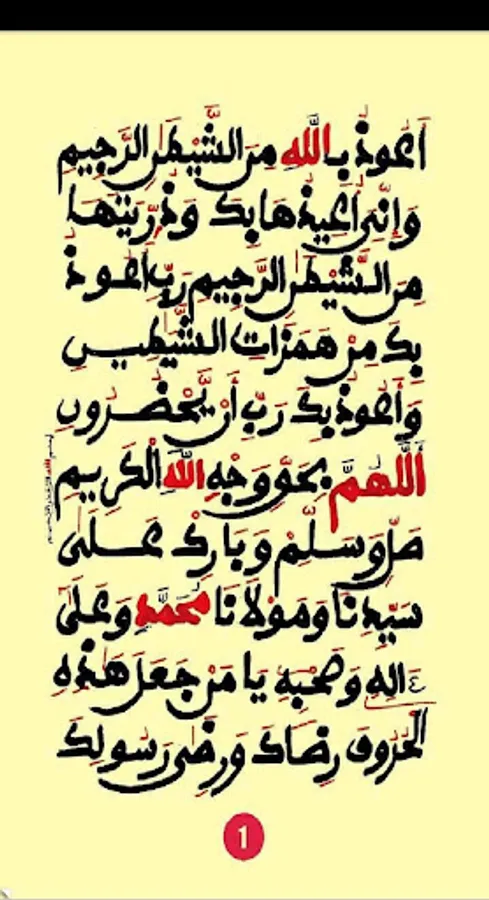 أعوذ بالله من الشيطن الرجيم
وإني أعيذها بك وذريتها
من الشيطن الرجيم رب أعوذ
بك من همزات الشيطين
وأعوذ بك رب أن يحضرون
اللهم بحق وجه الله الكريم
صل وسلم وبارك على
سيدنا ومولانا محمد وعلى
ءاله وصحبه يا من جعل هذه
الحروف رضاك ورضى رسولك
1